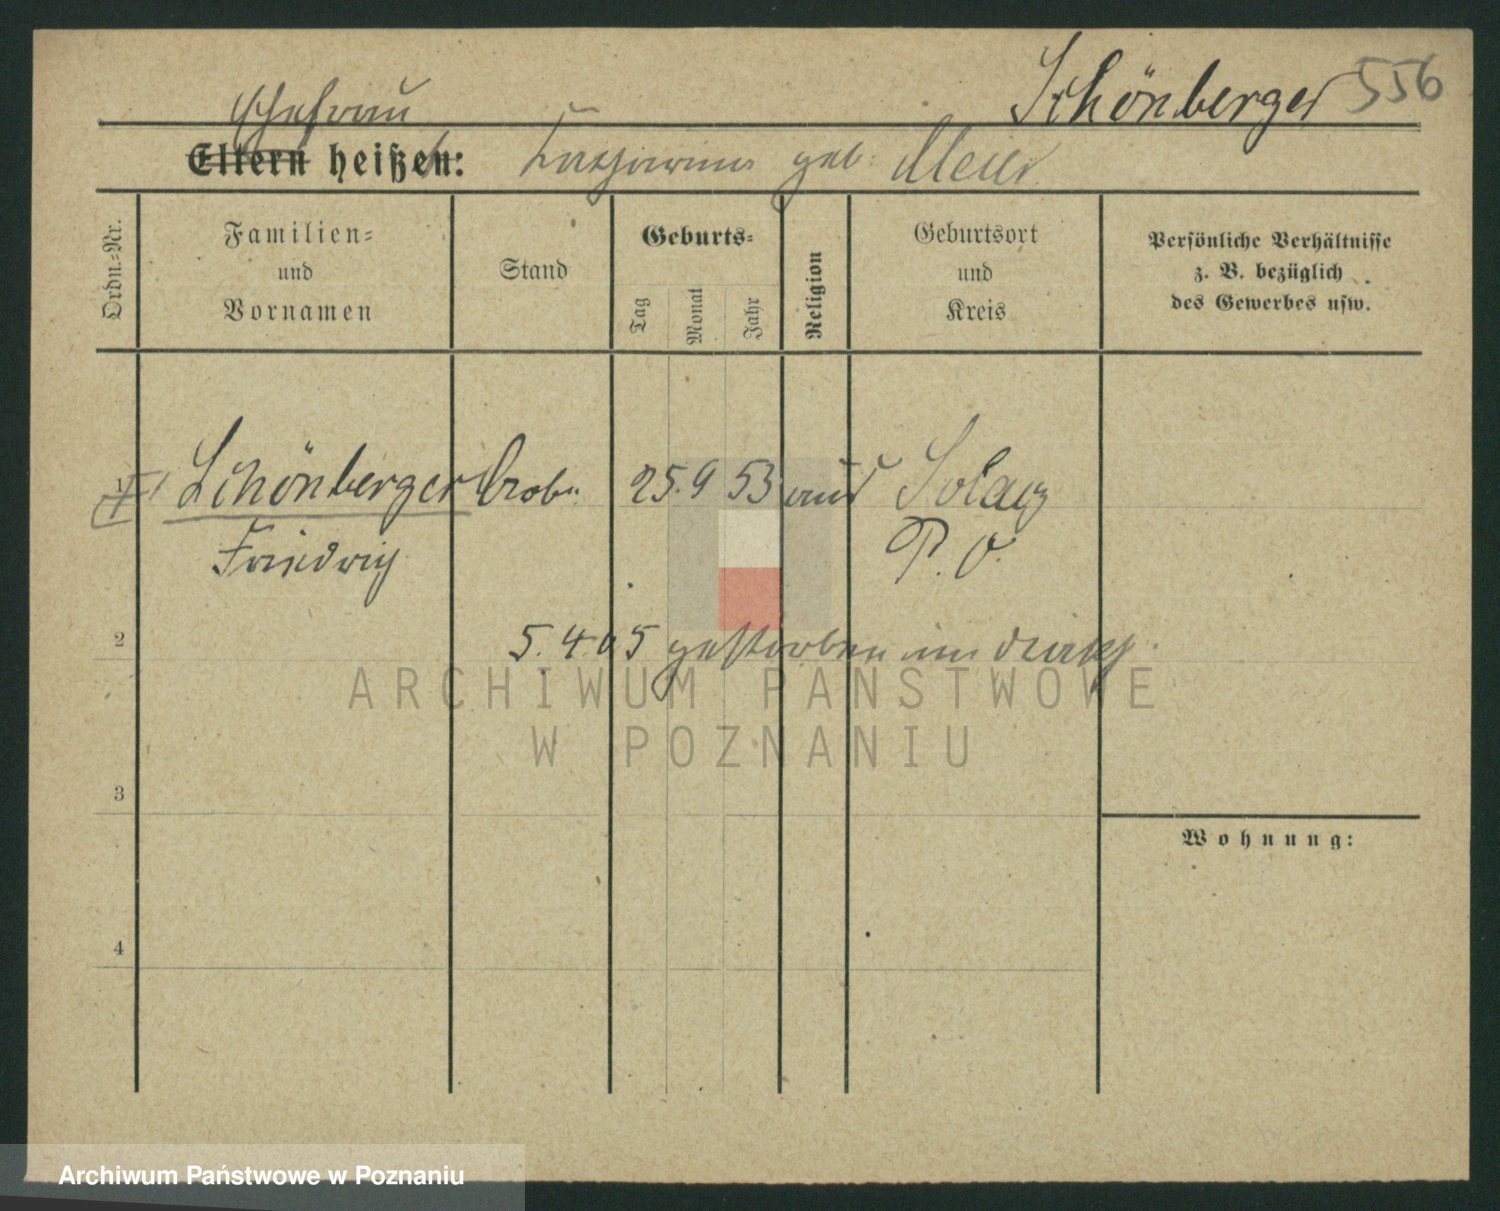 Schönberger 556
Ehefrau
Eltern heißen: Katharina geb. Meier
Ordn.-Nr.
Familien-
und
Vornamen
Stand
Geburts-
Tag
Monat
Jahr
Religion
Geburtsort
und
Kreis
Persönliche Verhältnisse
z. B. bezüglich
des Gewerbes usw.
1 Schönberger 25. 9 53 Solacz
Friedrich P. O.
2
5. 4. 05 gestorben im
3
4
Wohnung:
ARCHIWUM PAŃSTWOWE
W POZNANIU
Archiwum Państwowe w Poznaniu